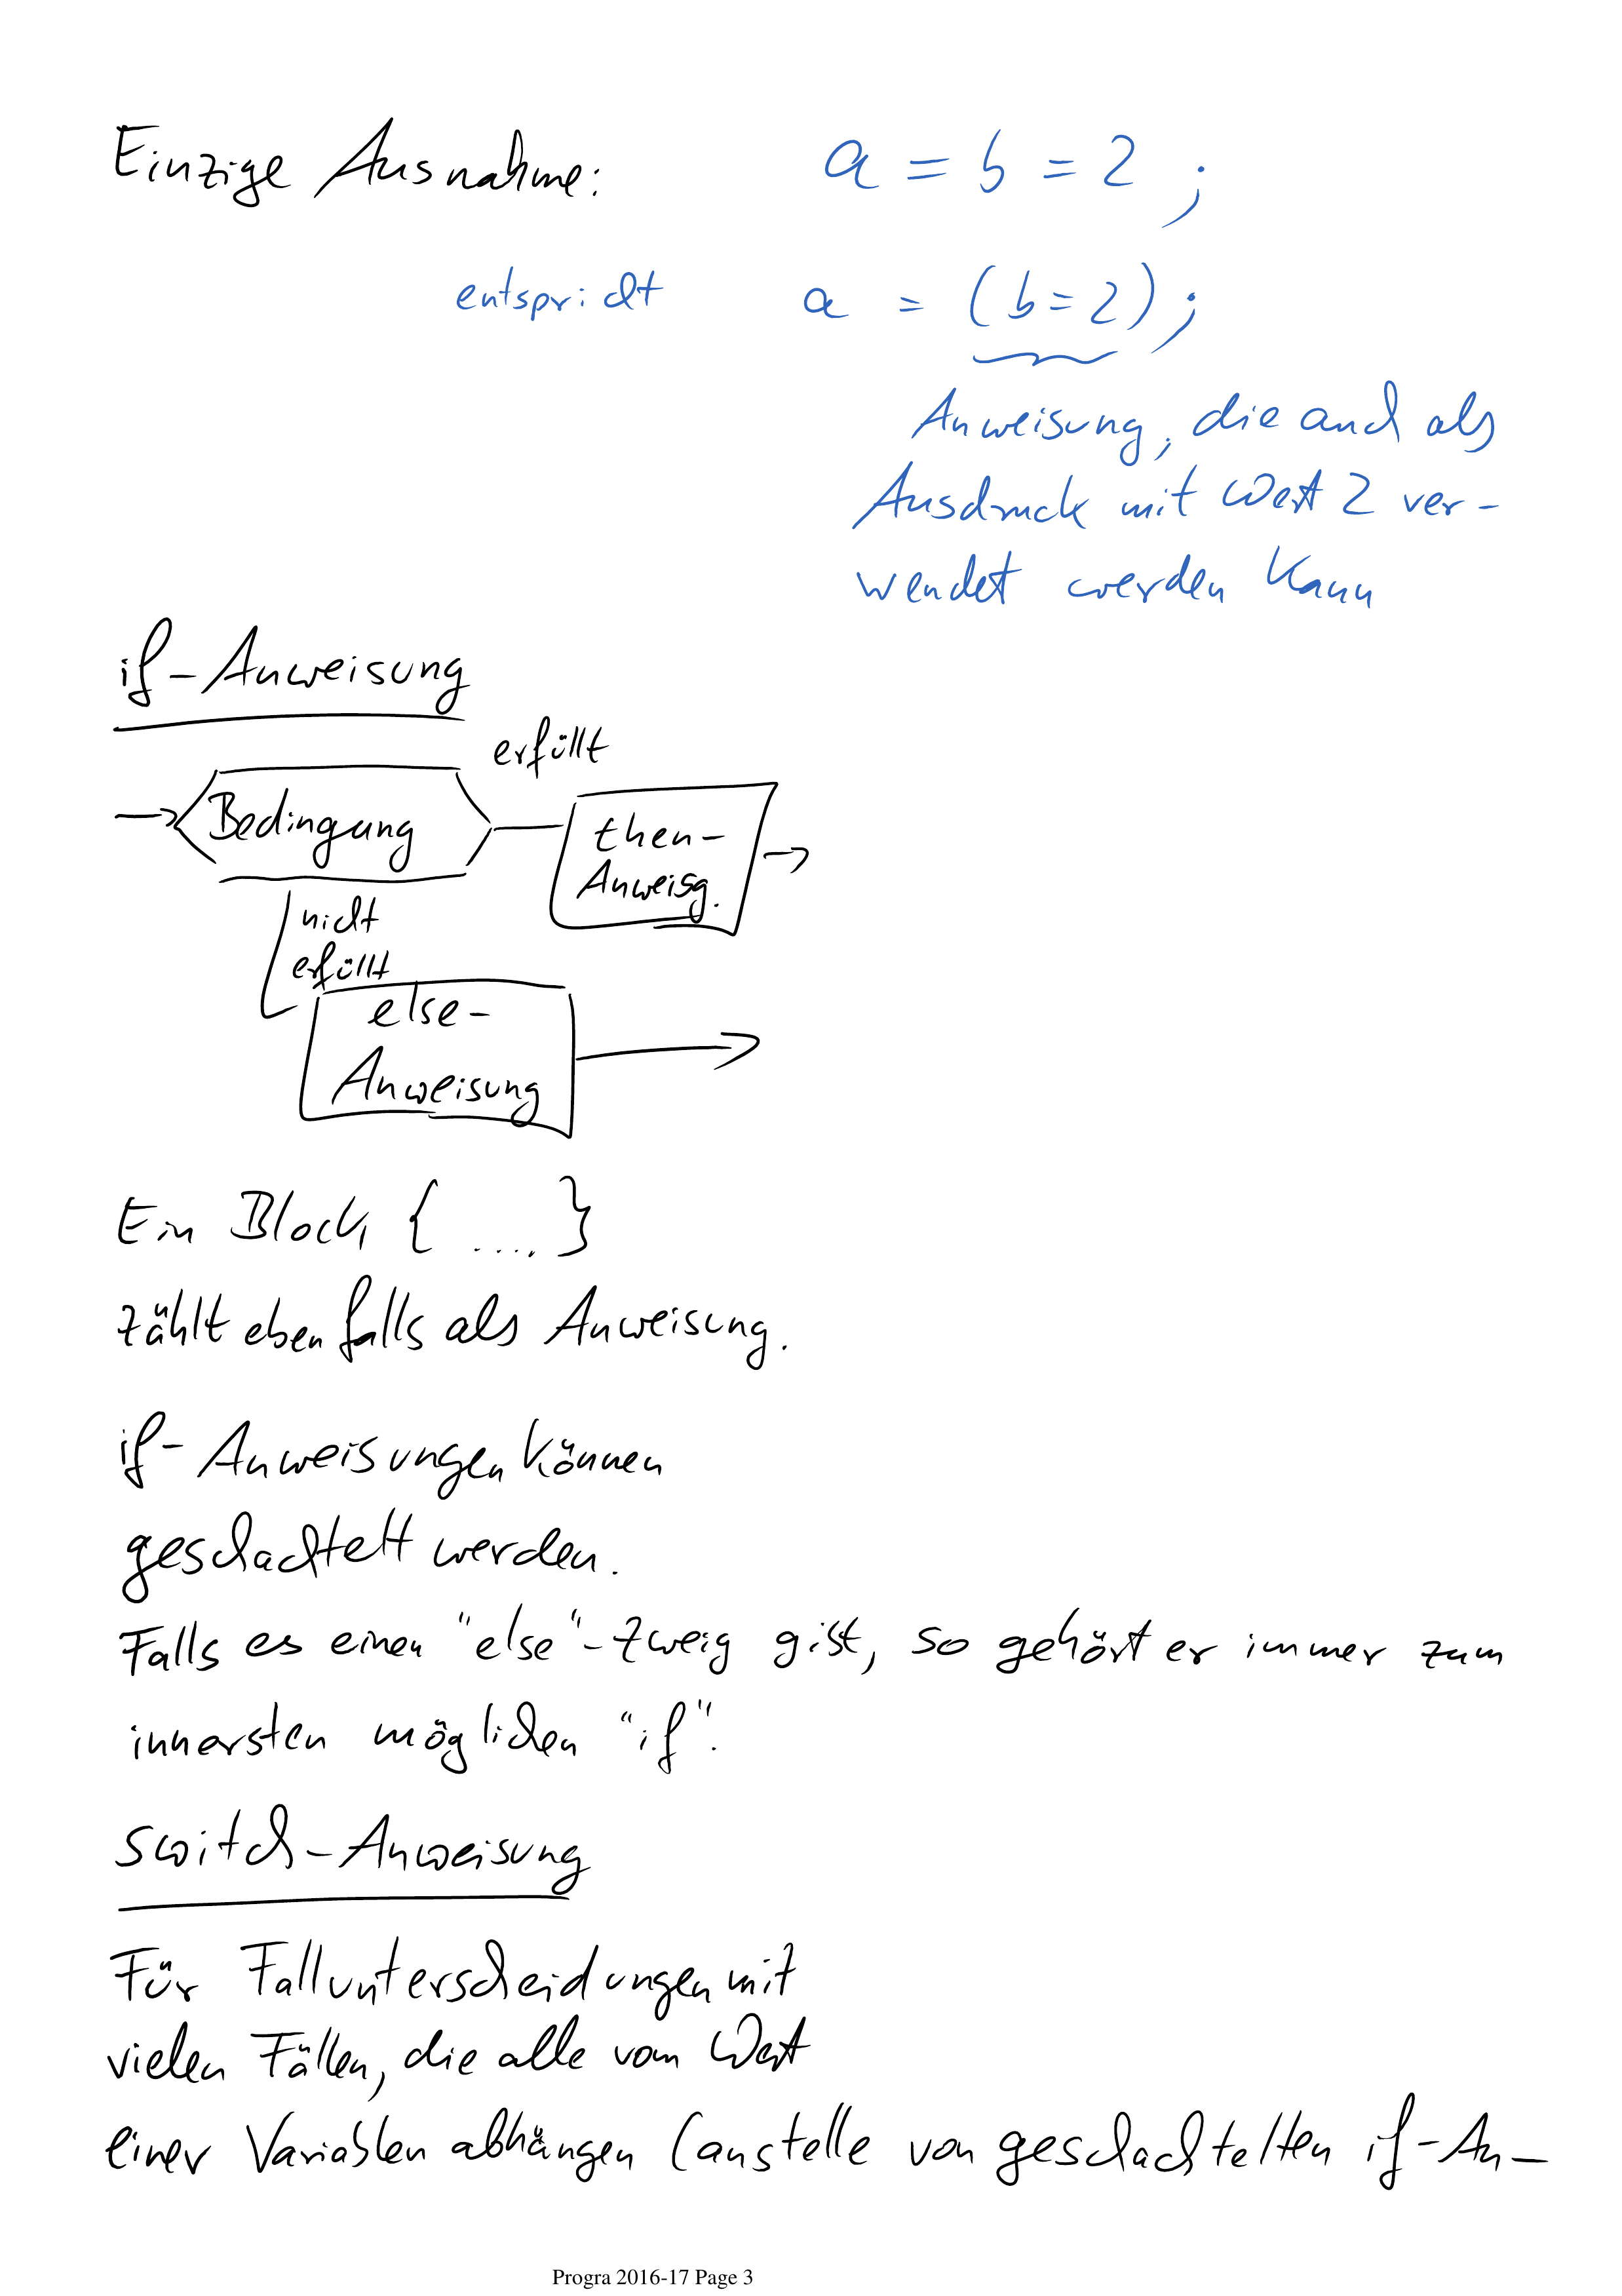 Einzige Ausnahme: a = b = 2 ;
entspricht a = (b=2);
Anweisung, die auch als
Ausdruck mit Wert 2 ver-
wendet werden kann
if-Anweisung
erfüllt
Bedingung
then-
Anweisg.
nicht
erfüllt
else-
Anweisung
Ein Block { .... }
zählt ebenfalls als Anweisung.
if-Anweisungen können
geschachtelt werden.
Falls es einen "else"-Zweig gibt, so gehört er immer zum
innersten möglichen "if".
switch-Anweisung
Für Fallunterscheidungen mit
vielen Fällen, die alle vom Wert
einer Variablen abhängen (anstelle von geschachtelten if-An-
Progra 2016-17 Page 3